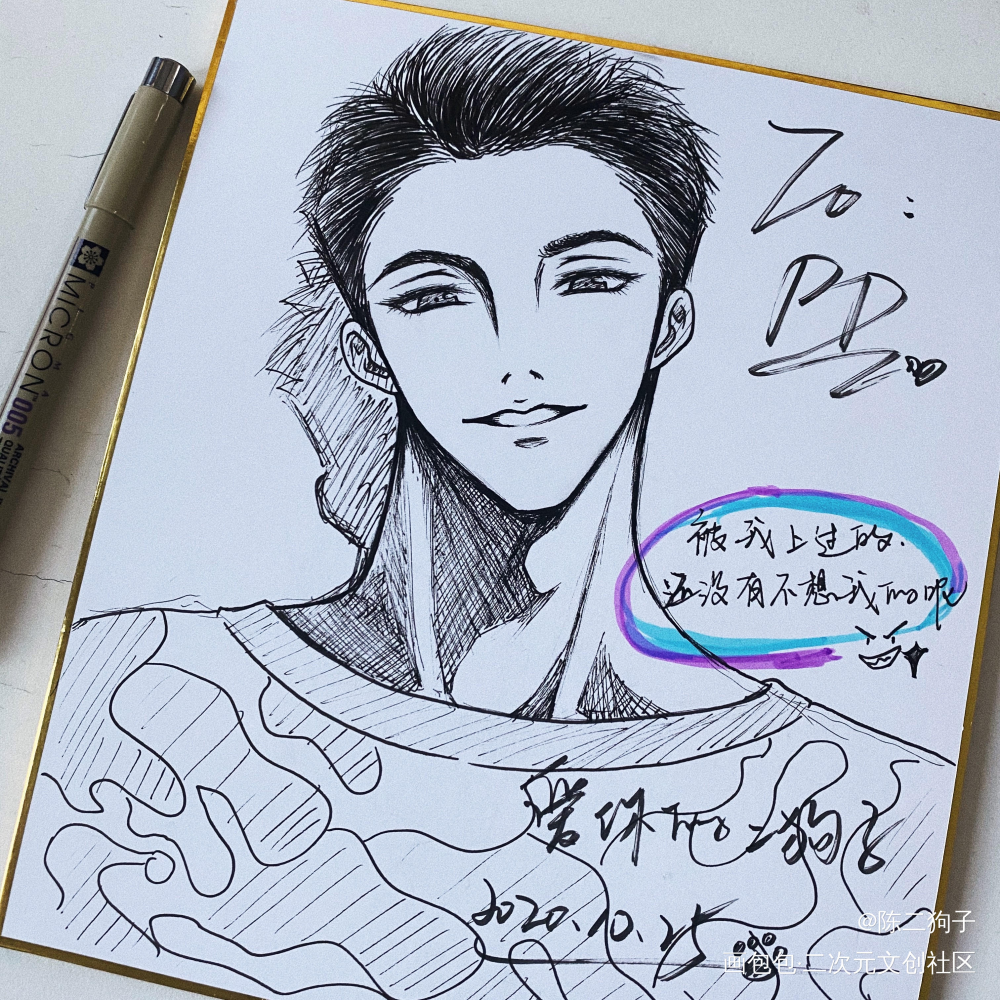 To:
PP
被我上过的.
还没有不想我TMD呢
营保TMD二狗子
2020.10.25
MICRON 005
ARCHIVAL
@陈二狗子
画包包·二次元文创社区